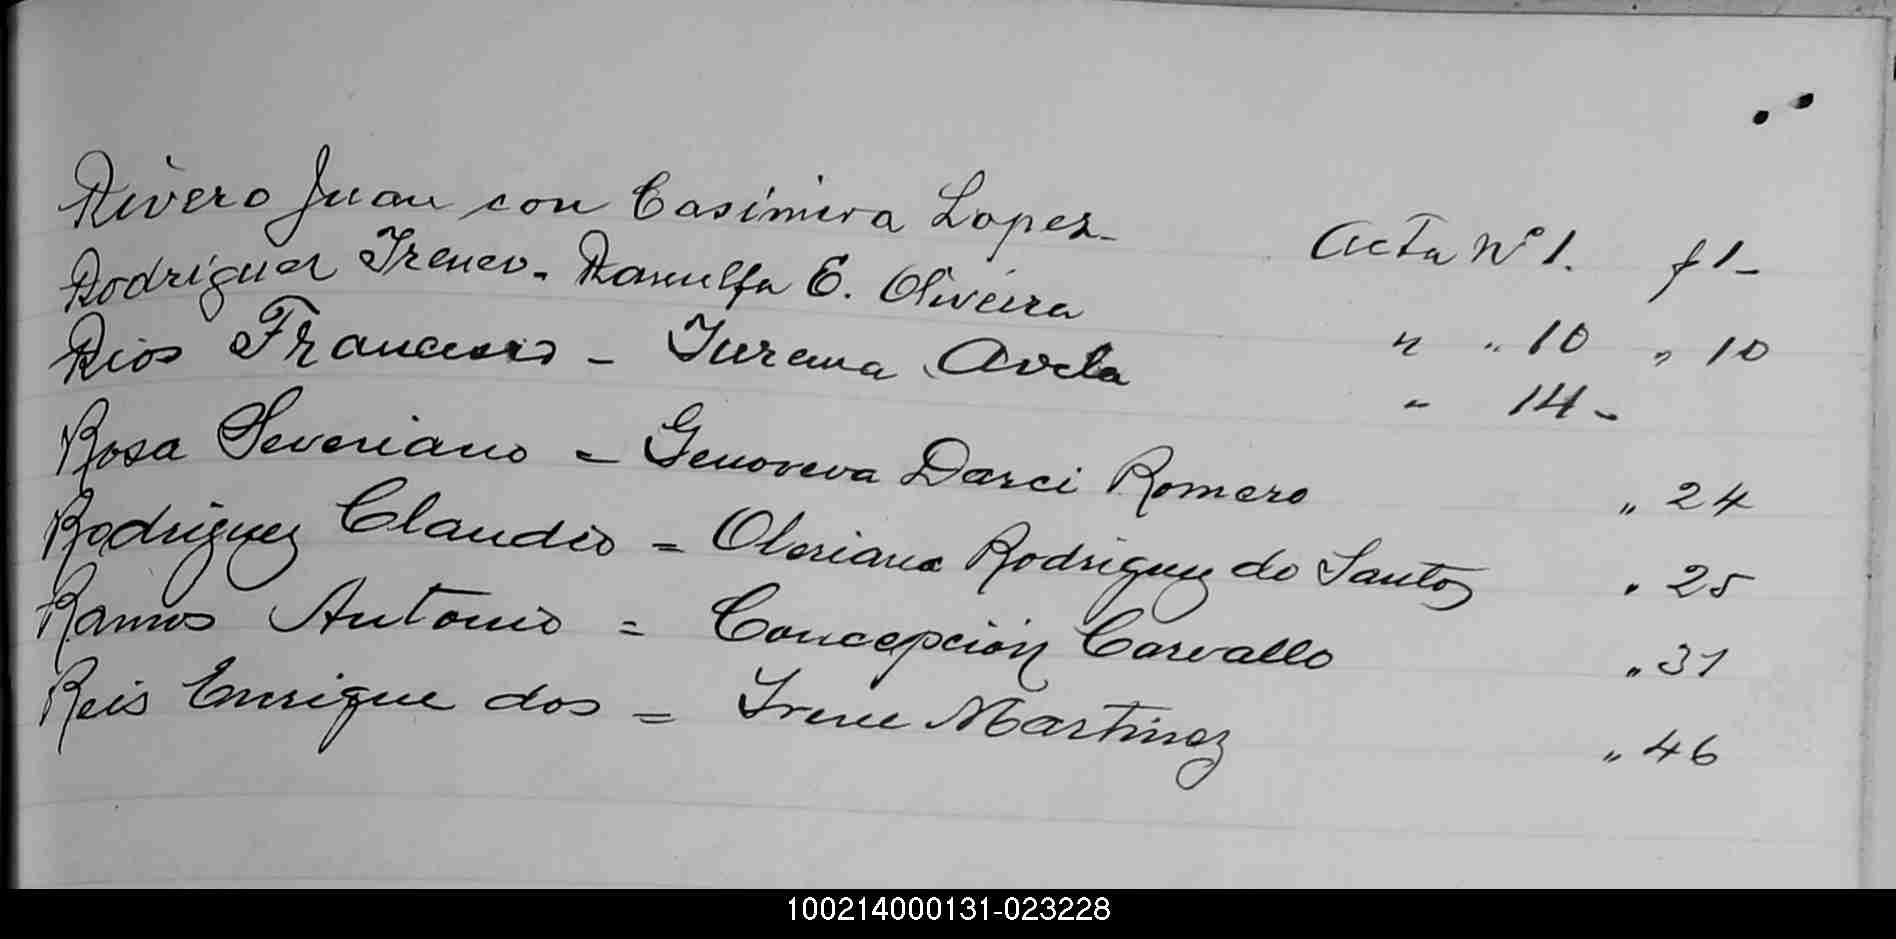 Rivero Juan con Casimira Lopez - Acta Nº 1. f 1 -
Rodriguez Ireneo - Ranulfa E. Oliveira " " 10 " 10
Rios Francisco - Jurema Avila " 14 -
Rosa Severiano = Genoveva Darci Romero " 24
Rodriguez Claudio = Oloriana Rodriguez do Santos " 25
Ramos Antonio = Concepción Carvallo " 31
Reis Enrique dos = Irene Martinez " 46
100214000131-023228